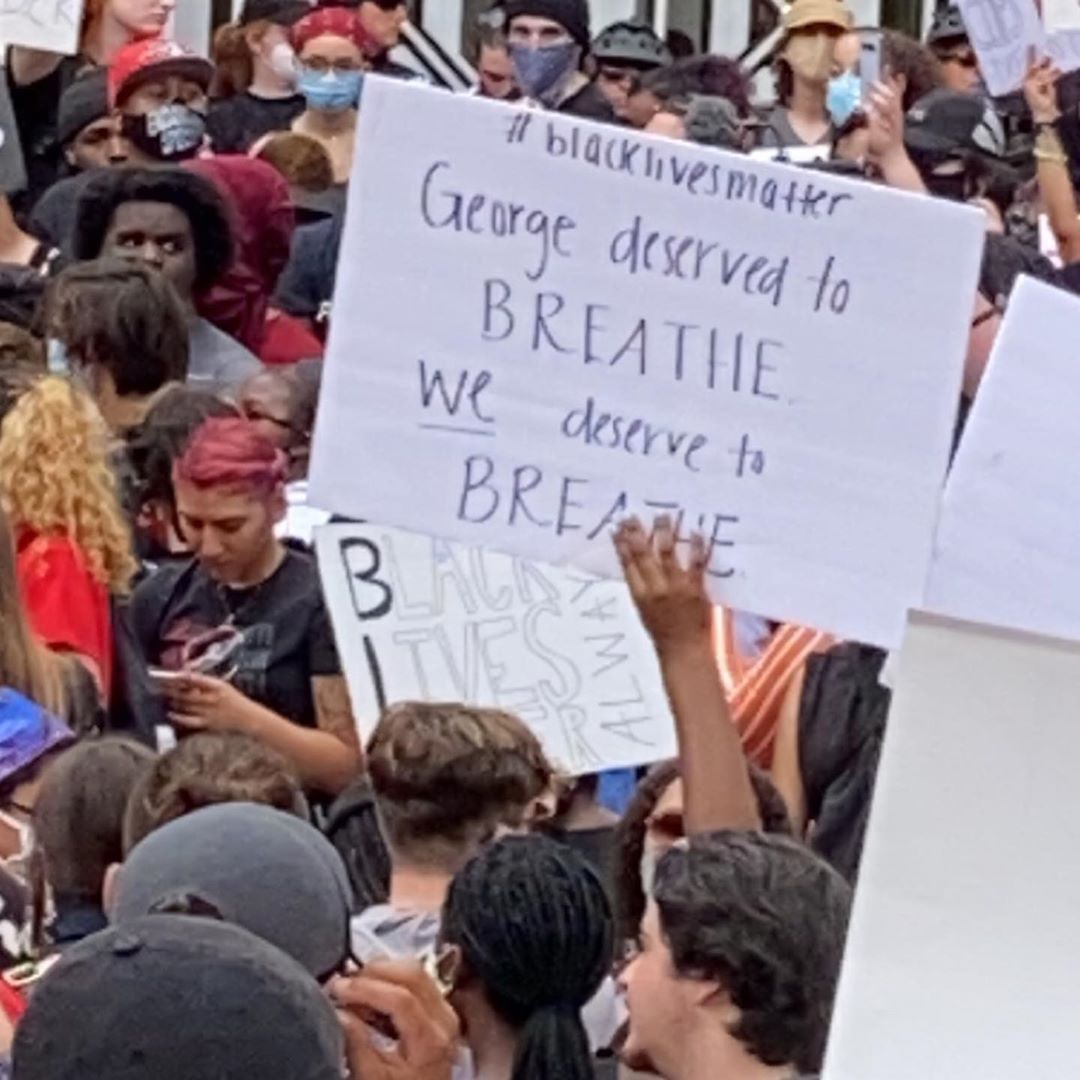 #blacklivesmatter
George deserved to
BREATHE.
We deserve to
BREATHE.
BLACK
LIVES
ALWAYS